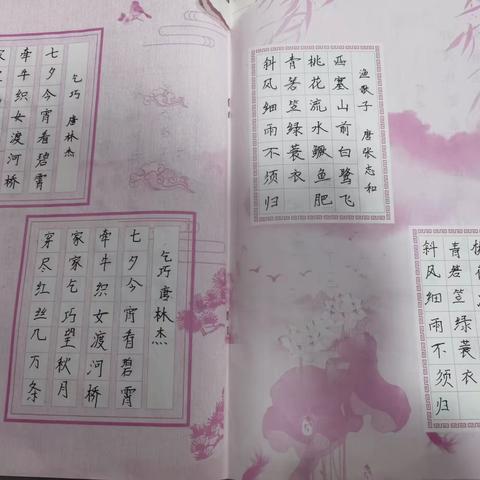 乞巧 唐林杰
七夕今宵看碧霄
牵牛织女渡河桥
家
乞巧 唐林杰
七夕今宵看碧霄
牵牛织女渡河桥
家家乞巧望秋月
穿尽红丝几万条
渔歌子 唐张志和
西塞山前白鹭飞
桃花流水鳜鱼肥
青箬笠绿蓑衣
斜风细雨不须归
青箬笠绿蓑衣
斜风细雨不须归